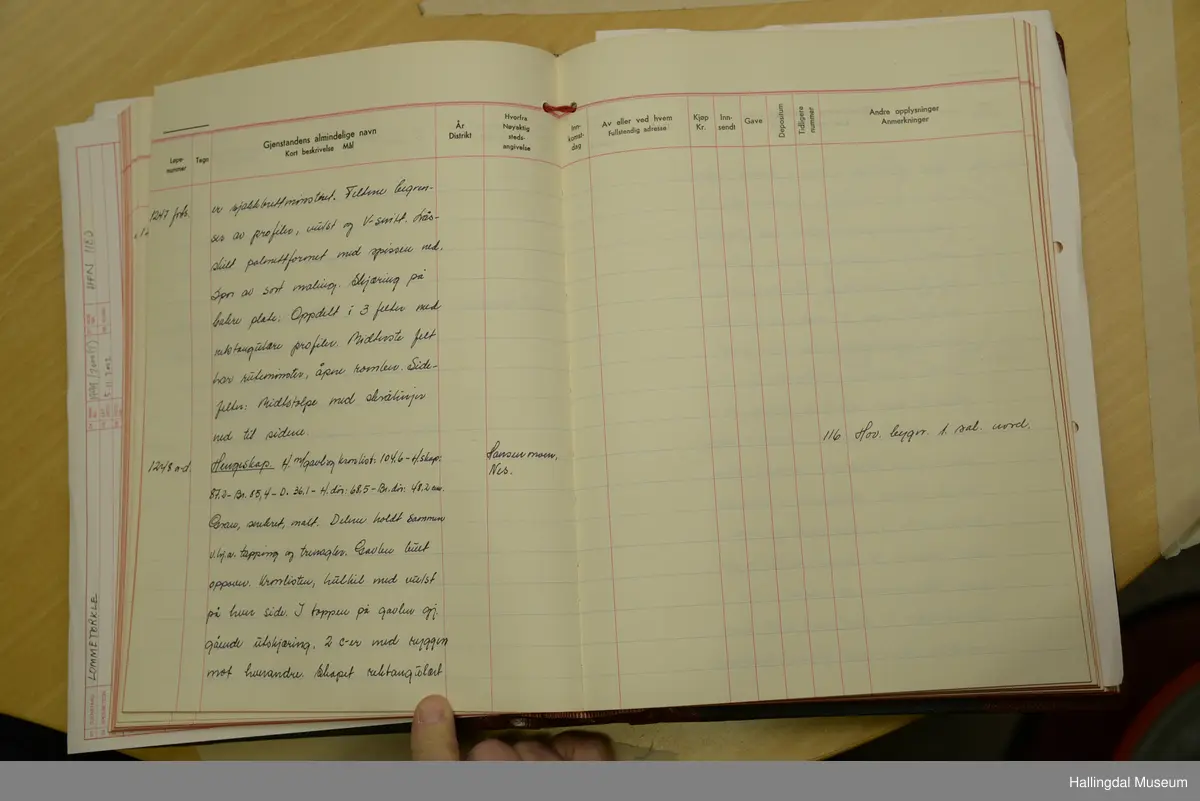 Løpe-
nummer
Tegn
Gjenstandens almindelige navn
Kort beskrivelse Mål
År
Distrikt
Hvorfra
Nøyaktig
steds-
angivelse
Inn-
komst-
dag
Av eller ved hvem
Fullstendig adresse
Kjøp
Kr.
Inn-
sendt
Gave
Depositum
Tidligere
nummer
Andre opplysninger
Anmerkninger
1247 forts.
er sjakkbrettmønstret. Feltene begren-
ses av profiler, vulst og V-snitt. Lås-
skilt palmettformet med spissen ned.
Spor av sort maling. Skjæring på
bakre plate. Oppdelt i 3 felter med
rektangulære profiler. Midterste felt
har rutemønster, åpne romber. Side-
felter: Midtstolpe med skrålinjer
ned til sidene.
1248 a-d.
Hengeskap. H. m/gavl og kronlist: 104.6 - H. skap:
87.2 - Br. 85,4 - D. 36.1 - H. dør: 68.5 - Br. dør: 48.2 cm.
Hansemoen,
Nes.
116 Hov. bygn. 1. sal. nord.
Gran, snekret, malt. Delene holdt sammen
v.hj.av. tapping og trenagler. Gavlen buet
oppover. Kronlisten, hulkil med vulst
på hver side. I toppen på gavlen gj.
gående utskjæring. 2 c-er med ryggen
mot hverandre. Skapet rektangulært
LOMMETØRKLE
Hallingdal Museum